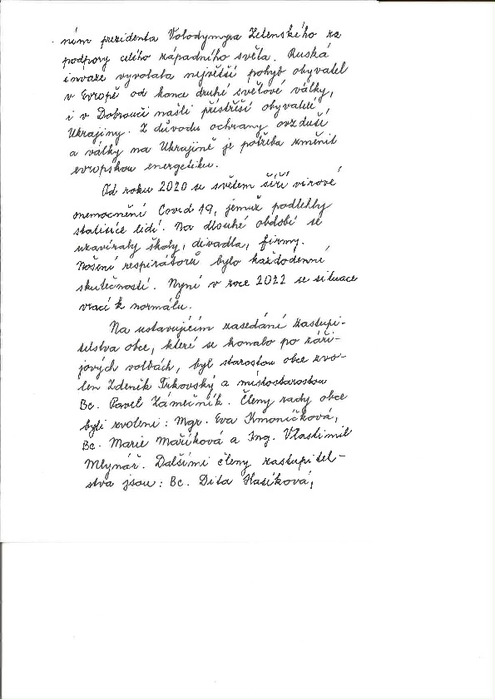 ním prezidenta Volodymyra Zelenského za
podpory celého západního světa. Ruská
invaze vyvolala největší pohyb obyvatel
v Evropě od konce druhé světové války,
i v Dobrouči našli přístřeší obyvatelé
Ukrajiny. Z důvodu ochrany ovzduší
a války na Ukrajině je potřeba změnit
evropskou energetiku.
Od roku 2020 se světem šíří virové
onemocnění Covid 19, jemuž podlehly
statisíce lidí. Na dlouhé období se
uzavíraly školy, divadla, firmy.
Nošení respirátorů bylo každodenní
skutečností. Nyní v roce 2022 se situace
vrací k normálu.
Na ustavujícím zasedání zastupi-
telstva obce, které se konalo po záři-
jových volbách, byl starostou obce zvo-
len Zdeněk a místostarostou
Bc. Pavel Zámečník. Členy rady obce
byli zvoleni: Mgr. Eva Kmoníčková,
Bc. Marie Maříková a Ing. Vlastimil
Mlynář. Dalšími členy zastupitel-
stva jsou: Bc. Dita Hasíková,